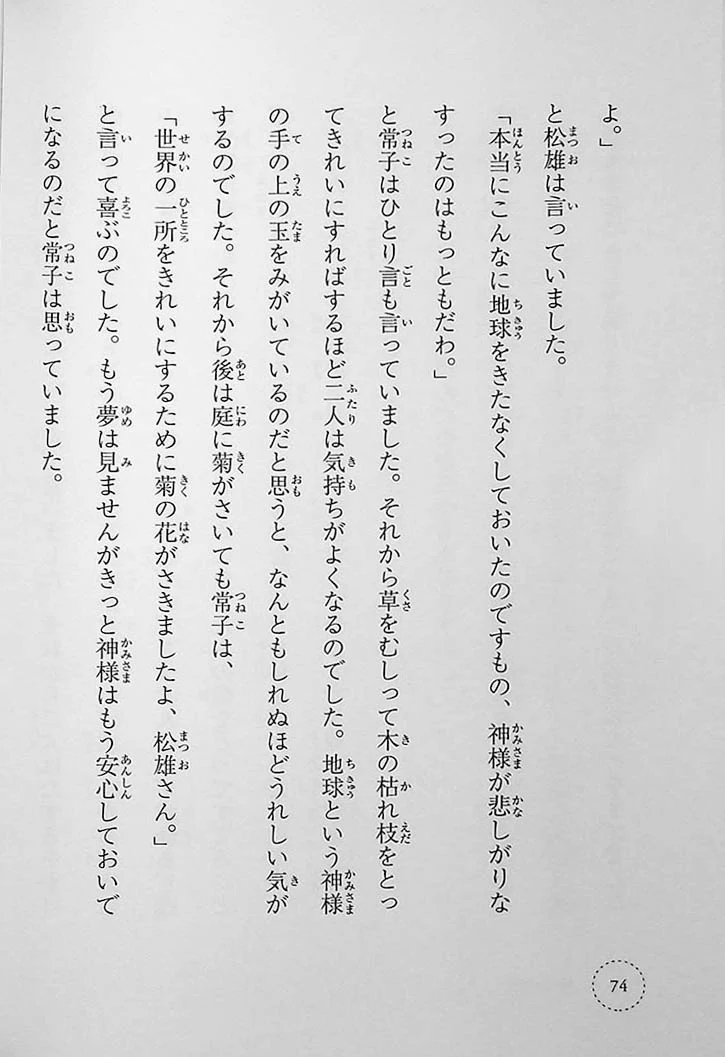 よ。」
と松雄は言っていました。
「本当にこんなに地球をきたなくしておいたのですもの、神様が悲しがりな
すったのはもっともだわ。」
と常子はひとり言も言っていました。それから草をむしって木の枯れ枝をとっ
てきれいにすればするほど二人は気持ちがよくなるのでした。地球という神様
の手の上の玉をみがいているのだと思うと、なんともしれぬほどうれしい気が
するのでした。それから後は庭に菊がさいても常子は、
「世界の一所をきれいにするために菊の花がさきましたよ、松雄さん。」
と言って喜ぶのでした。もう夢は見ませんがきっと神様はもう安心しておいで
になるのだと常子は思っていました。
74